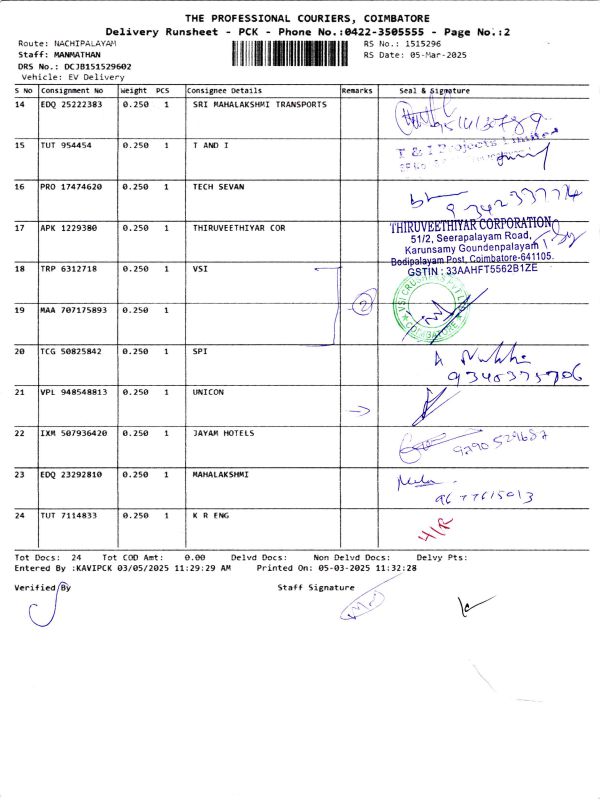 THE PROFESSIONAL COURIERS, COIMBATORE
Delivery Runsheet - PCK - Phone No.:0422-3505555 - Page No.:2
Route: NACHIPALAYAM RS No.: 1515296
Staff: MANMATHAN RS Date: 05-Mar-2025
DRS No.: DCJB151529602
Vehicle: EV Delivery
S No Consignment No Weight PCS Consignee Details Remarks Seal & Signature
14 EDQ 25222383 0.250 1 SRI MAHALAKSHMI TRANSPORTS
15 TUT 954454 0.250 1 T AND I T & I Projects Limited
16 PRO 17474620 0.250 1 TECH SEVAN
9342337774
17 APK 1229380 0.250 1 THIRUVEETHIYAR COR THIRUVEETHIYAR CORPORATION
51/2, Seerapalayam Road,
Karunsamy Goundenpalayam
Bodipalayam Post, Coimbatore-641105.
GSTIN : 33AAHFT5562B1ZE
18 TRP 6312718 0.250 1 VSI
19 MAA 707175893 0.250 1 2
COIMBATORE
20 TCG 50825842 0.250 1 SPI
9340375706
21 VPL 948548813 0.250 1 UNICON
22 IXM 507936420 0.250 1 JAYAM HOTELS
9290529687
23 EDQ 23292810 0.250 1 MAHALAKSHMI
9677615013
24 TUT 7114833 0.250 1 K R ENG
Tot Docs: 24 Tot COD Amt: 0.00 Delvd Docs: Non Delvd Docs: Delvy Pts:
Entered By :KAVIPCK 03/05/2025 11:29:29 AM Printed On: 05-03-2025 11:32:28
Verified By Staff Signature